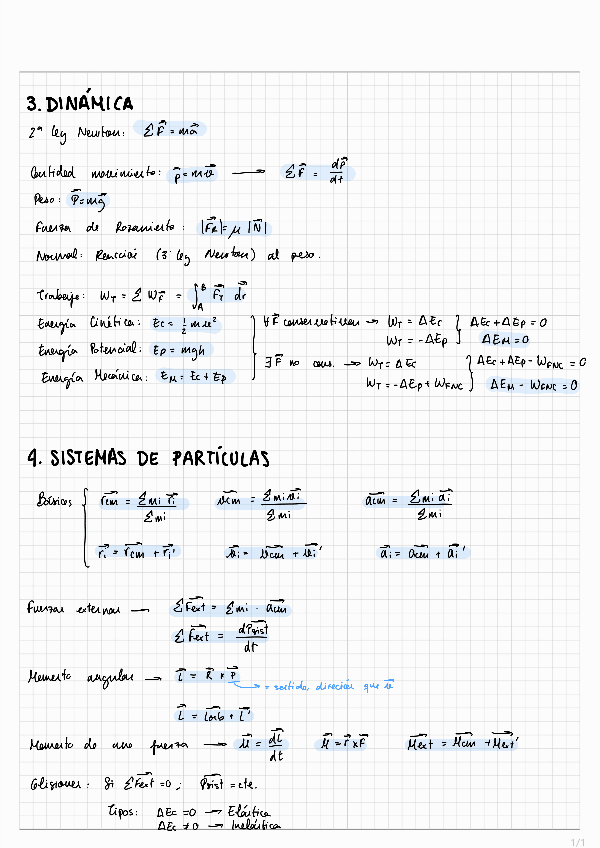 3. DINÁMICA
2ª ley Newton: Σ F⃗ = m a⃗
Cantidad movimiento: p⃗ = m v⃗ → Σ F⃗ = dp⃗/dt
Peso: P⃗ = m g⃗
Fuerza de Rozamiento: |F⃗R| = μ |N⃗|
Normal: Reacción (3ª ley Newton) al peso.
Trabajo: WT = Σ WF⃗ = ∫_A^B F⃗T dr⃗
Energía Cinética: Ec = 1/2 m v² } ∀ F⃗ conservativas → WT = ΔEc } ΔEc + ΔEp = 0
WT = -ΔEp } ΔEM = 0
Energía Potencial: Ep = mgh
∃ F⃗ no cons. → WT = ΔEc } ΔEc + ΔEp - WFNC = 0
Energía Mecánica: EM = Ec + Ep
WT = -ΔEp + WFNC } ΔEM - WFNC = 0
4. SISTEMAS DE PARTÍCULAS
Básicas { r⃗cm = Σ mi r⃗i / Σ mi v⃗cm = Σ mi v⃗i / Σ mi a⃗cm = Σ mi a⃗i / Σ mi
r⃗i = r⃗cm + r⃗i' v⃗i = v⃗cm + v⃗i' a⃗i = a⃗cm + a⃗i'
Fuerzas externas → Σ F⃗ext = Σ mi · a⃗cm
Σ F⃗ext = dP⃗sist/dt
Momento angular → L⃗ = R⃗ x P⃗
→ = sentido, dirección que v⃗
L⃗ = L⃗orb + L⃗'
Momento de una fuerza → M⃗ = dL⃗/dt M⃗ = r⃗ x F⃗ M⃗ext = M⃗cm + M⃗ext'
Colisiones: Si Σ F⃗ext = 0; P⃗sist = cte.
Tipos: ΔEc = 0 → Elástica
ΔEc ≠ 0 → Inelástica
1/1